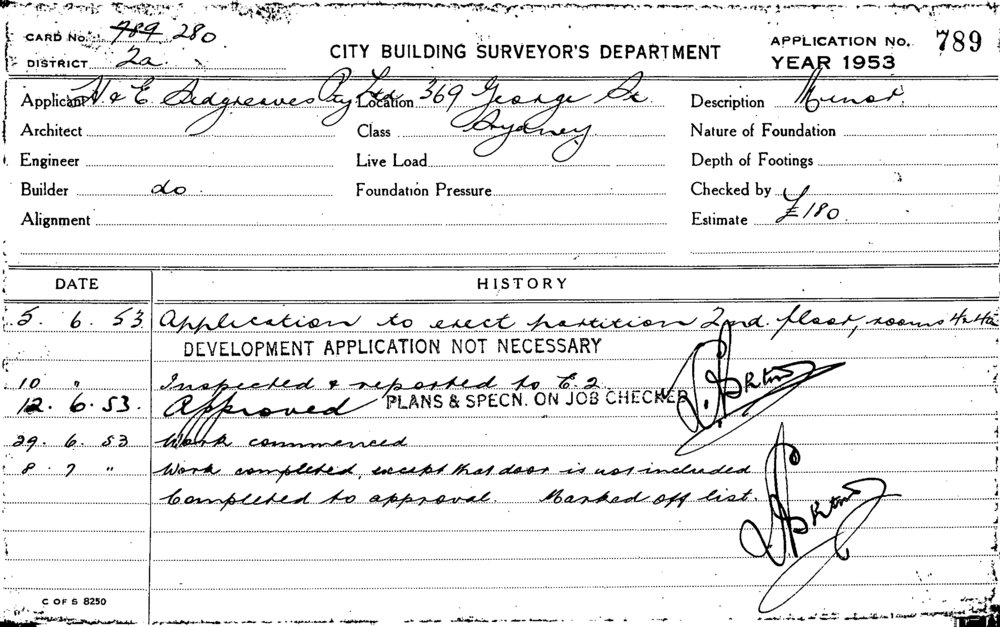 CARD No. 789 280
DISTRICT 2a.
CITY BUILDING SURVEYOR'S DEPARTMENT
APPLICATION No. 789
YEAR 1953
Applicant H & E. Sedgreaves Pty Ltd Location 369 George St. Description Minor
Architect Class Sydney. Nature of Foundation
Engineer Live Load Depth of Footings
Builder do Foundation Pressure Checked by
Alignment Estimate £180
DATE HISTORY
5. 6. 53 Application to erect partition 2nd. floor, rooms
DEVELOPMENT APPLICATION NOT NECESSARY
10 " Inspected & reported to E.2.
12. 6. 53. Approved PLANS & SPECN. ON JOB CHECKED
29. 6. 53 Work commenced
8. 7 " Work completed, except that door is not included
Completed to approval. Marked off list.
C OF S 8250